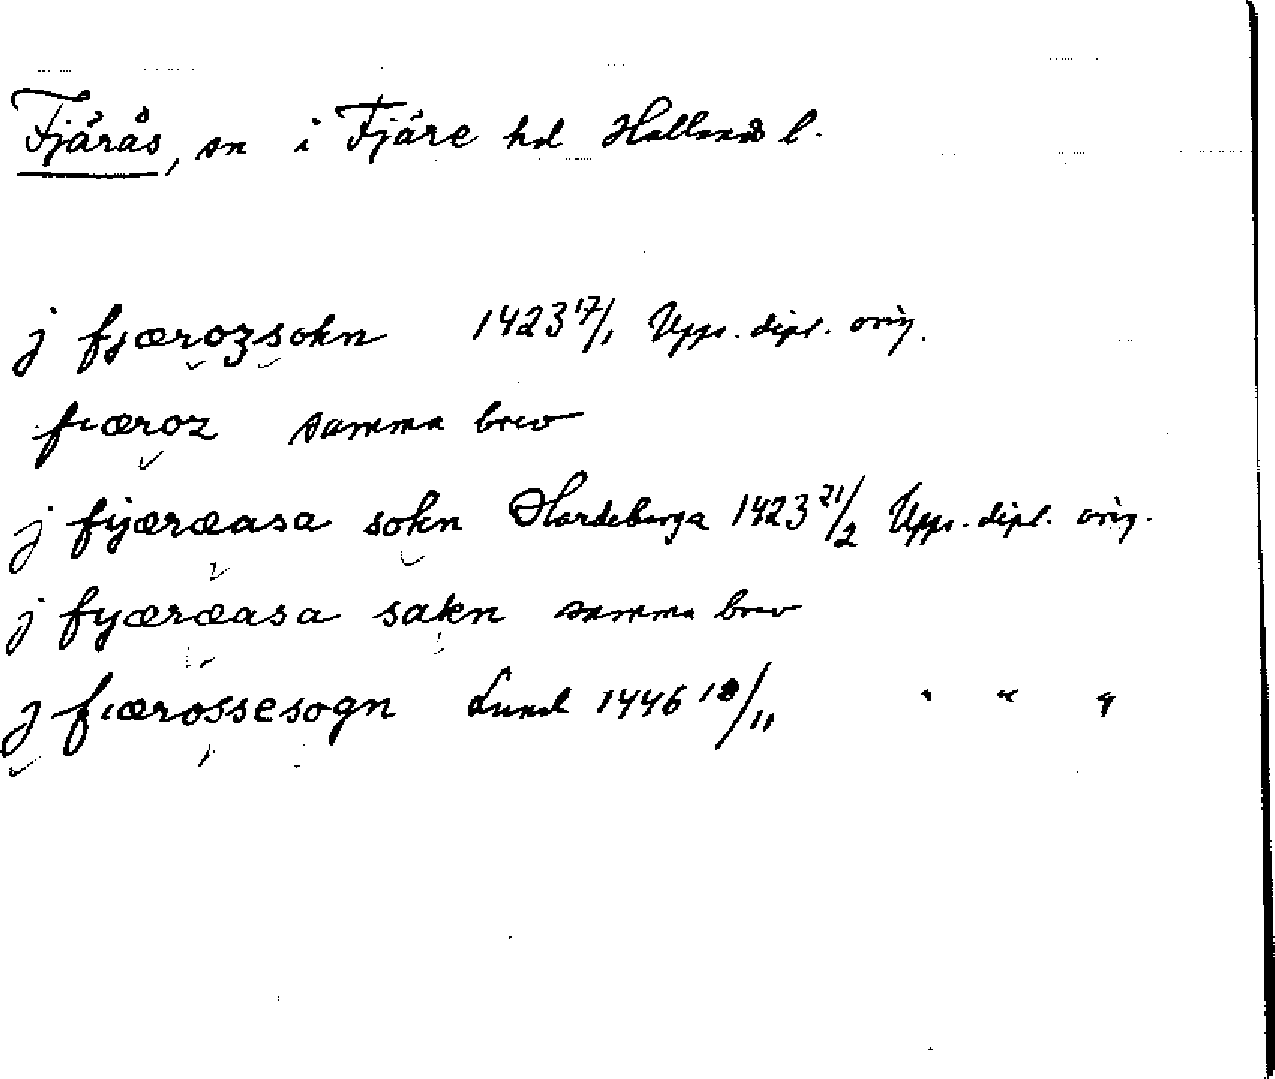 Fjärås, sn i Fjäre hd Hallands l.
j fjærozsokn 1423 17/1 Upps. dipl. orig.
fiæroz samma brev
j fijæræasa sokn Hardeberga 1423 21/2 Upps. dipl. orig.
j fyæræasa sakn samma brev
j fiærossesogn Lund 1446 18/11 " " "